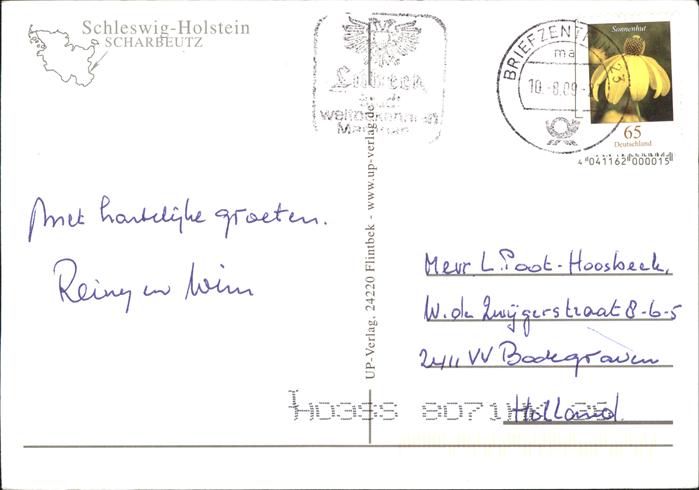 Schleswig-Holstein
SCHARBEUTZ
Met hartelijke groeten.
Reiny en Wim
UP-Verlag, 24220 Flintbek - www.up-verlag.de
Lübeck
BRIEFZENTRUM 23
ma
10.-8.09
Sonnenhut
65
Deutschland
4 041162 000015
Mevr. L. Poot-Hoosbeek,
W. de Zwijgerstraat 8-6-5
2411 VV Bodegraven
Holland.